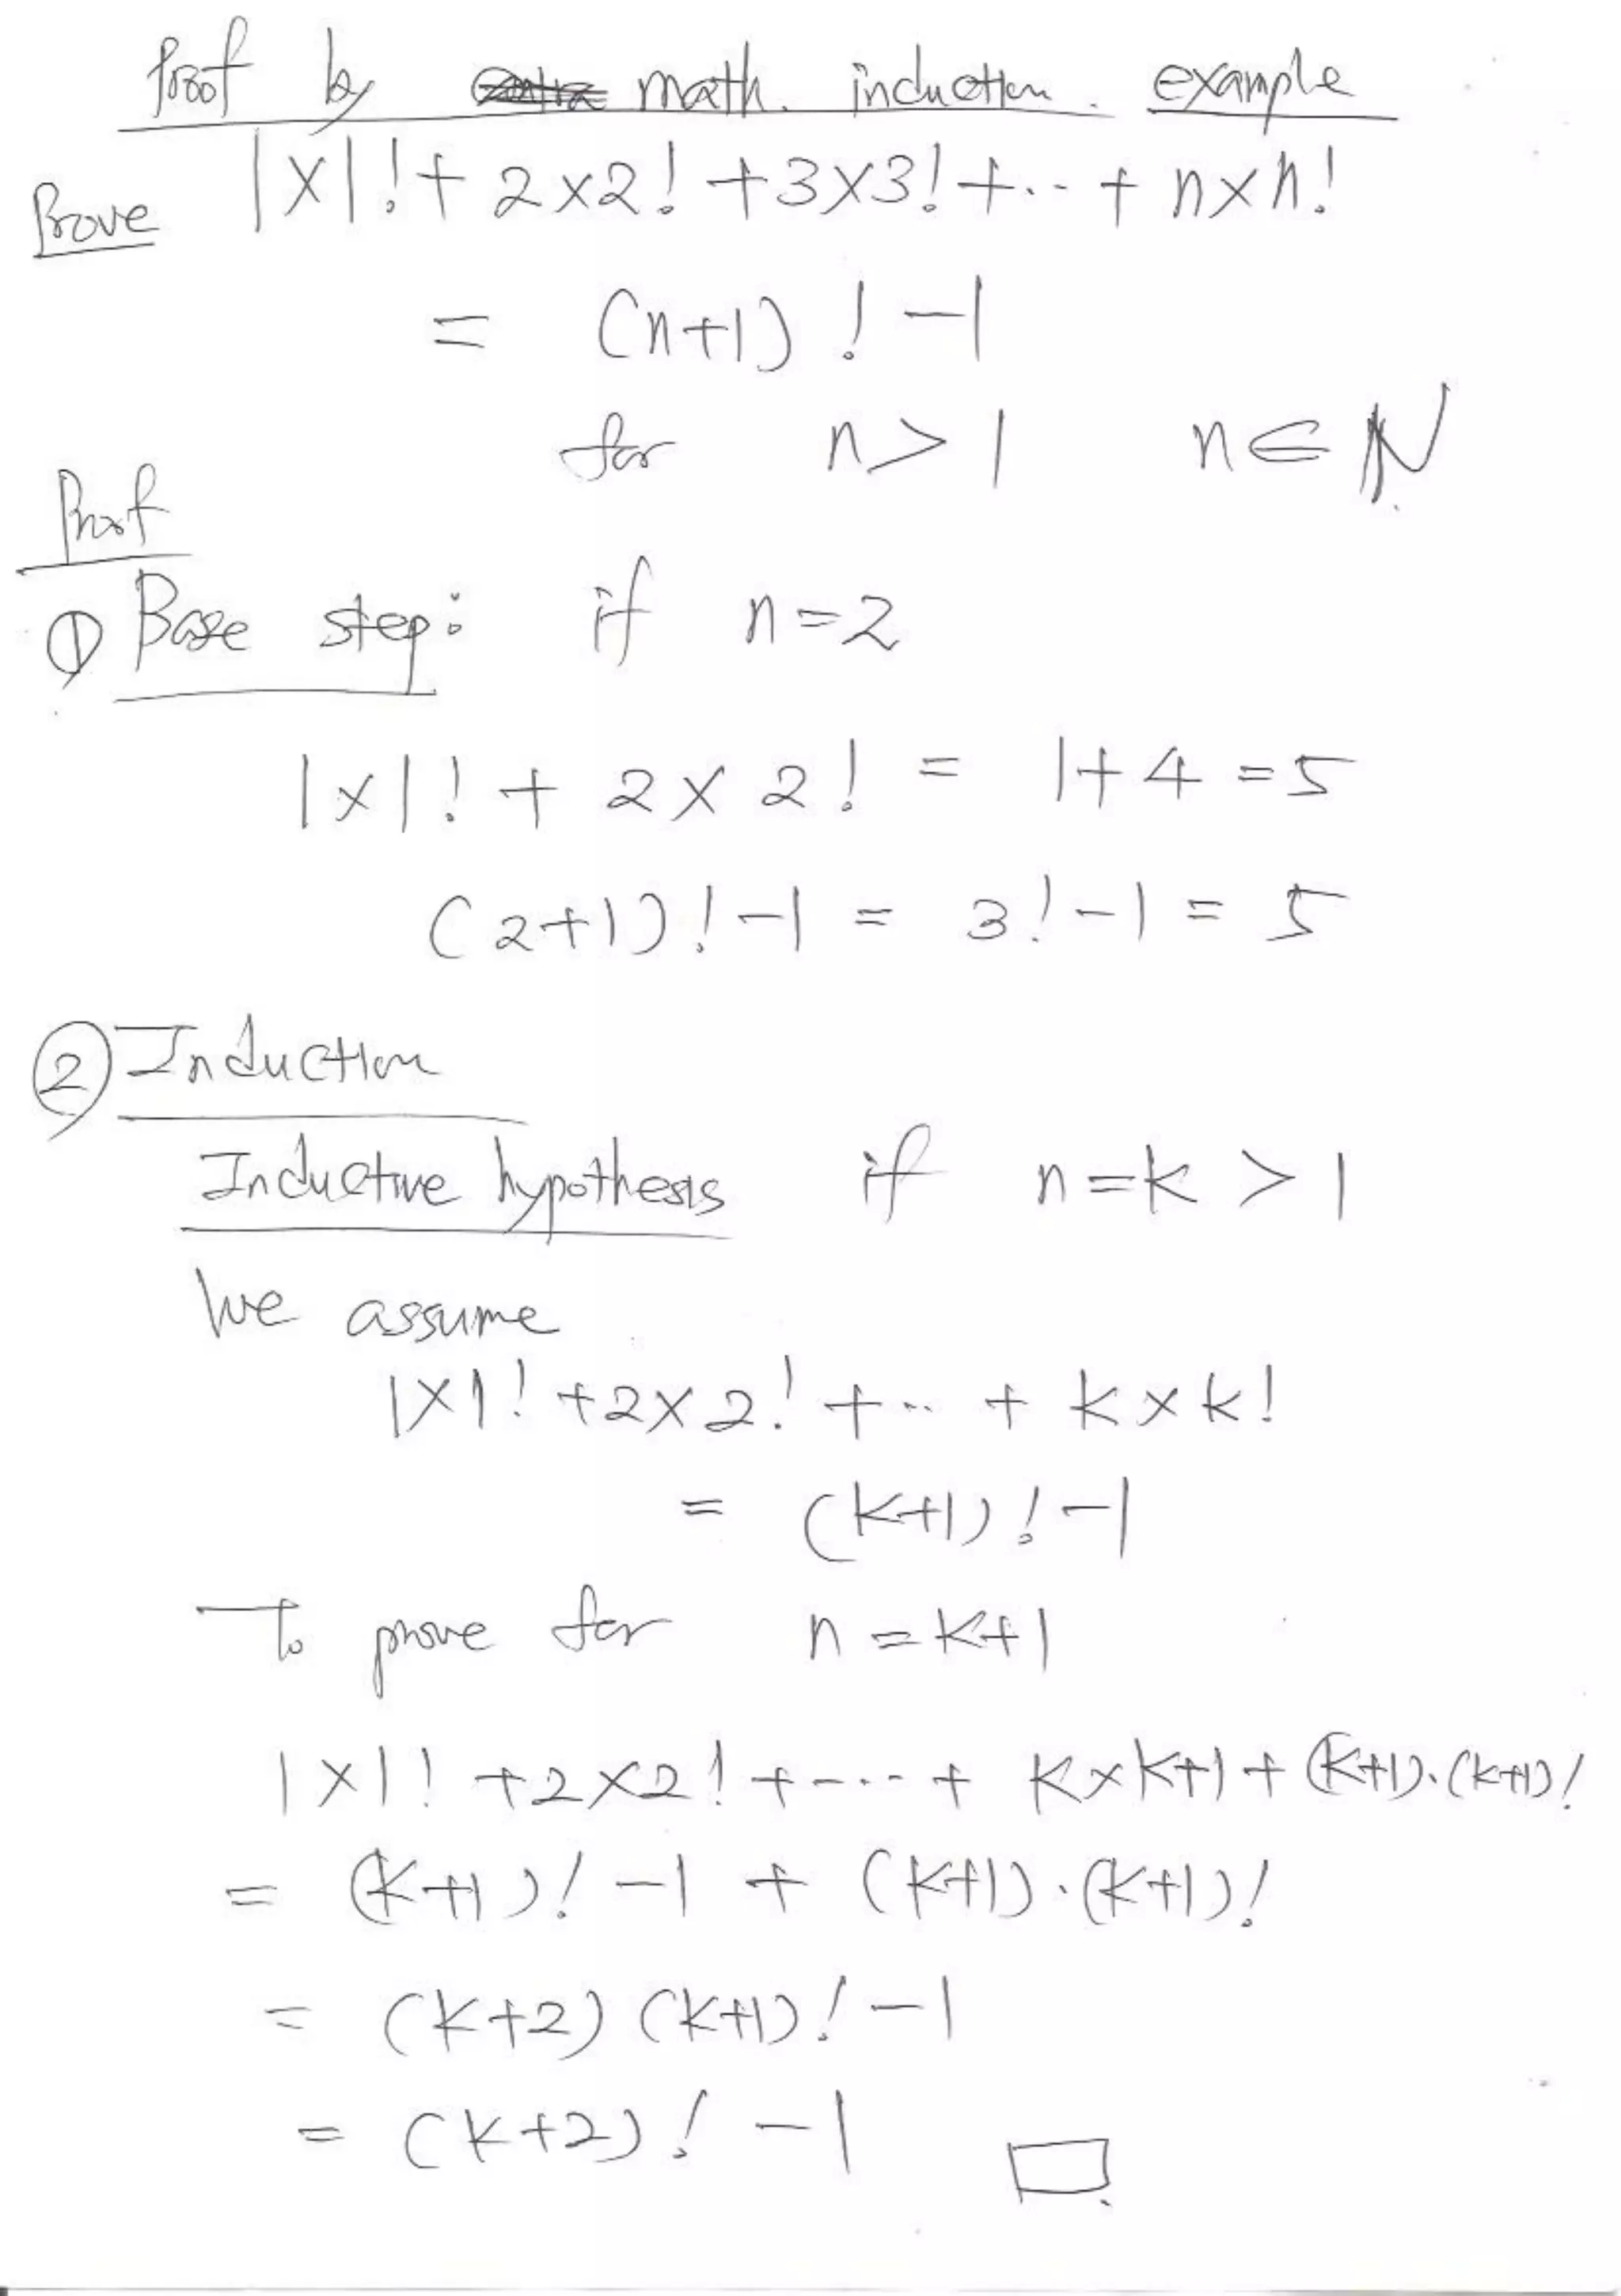 Proof by math. induction. example
Prove 1×1!+2×2!+3×3!+...+n×n!
= (n+1)!-1
for n>1 n∈ℕ
Proof
① Base step: if n=2
1×1!+2×2! = 1+4=5
(2+1)!-1 = 3!-1 = 5
② Induction
Inductive hypothesis if n=k>1
We assume
1×1!+2×2!+..+k×k!
= (k+1)!-1
To prove for n=k+1
1×1!+2×2!+----+k×k+1+(k+1).(k+1)!
= (k+1)!-1+(k+1).(k+1)!
= (k+2)(k+1)!-1
= (k+2)!-1 □